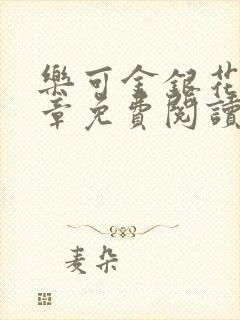 樂可金銀花
章免費閱讀
麦朵